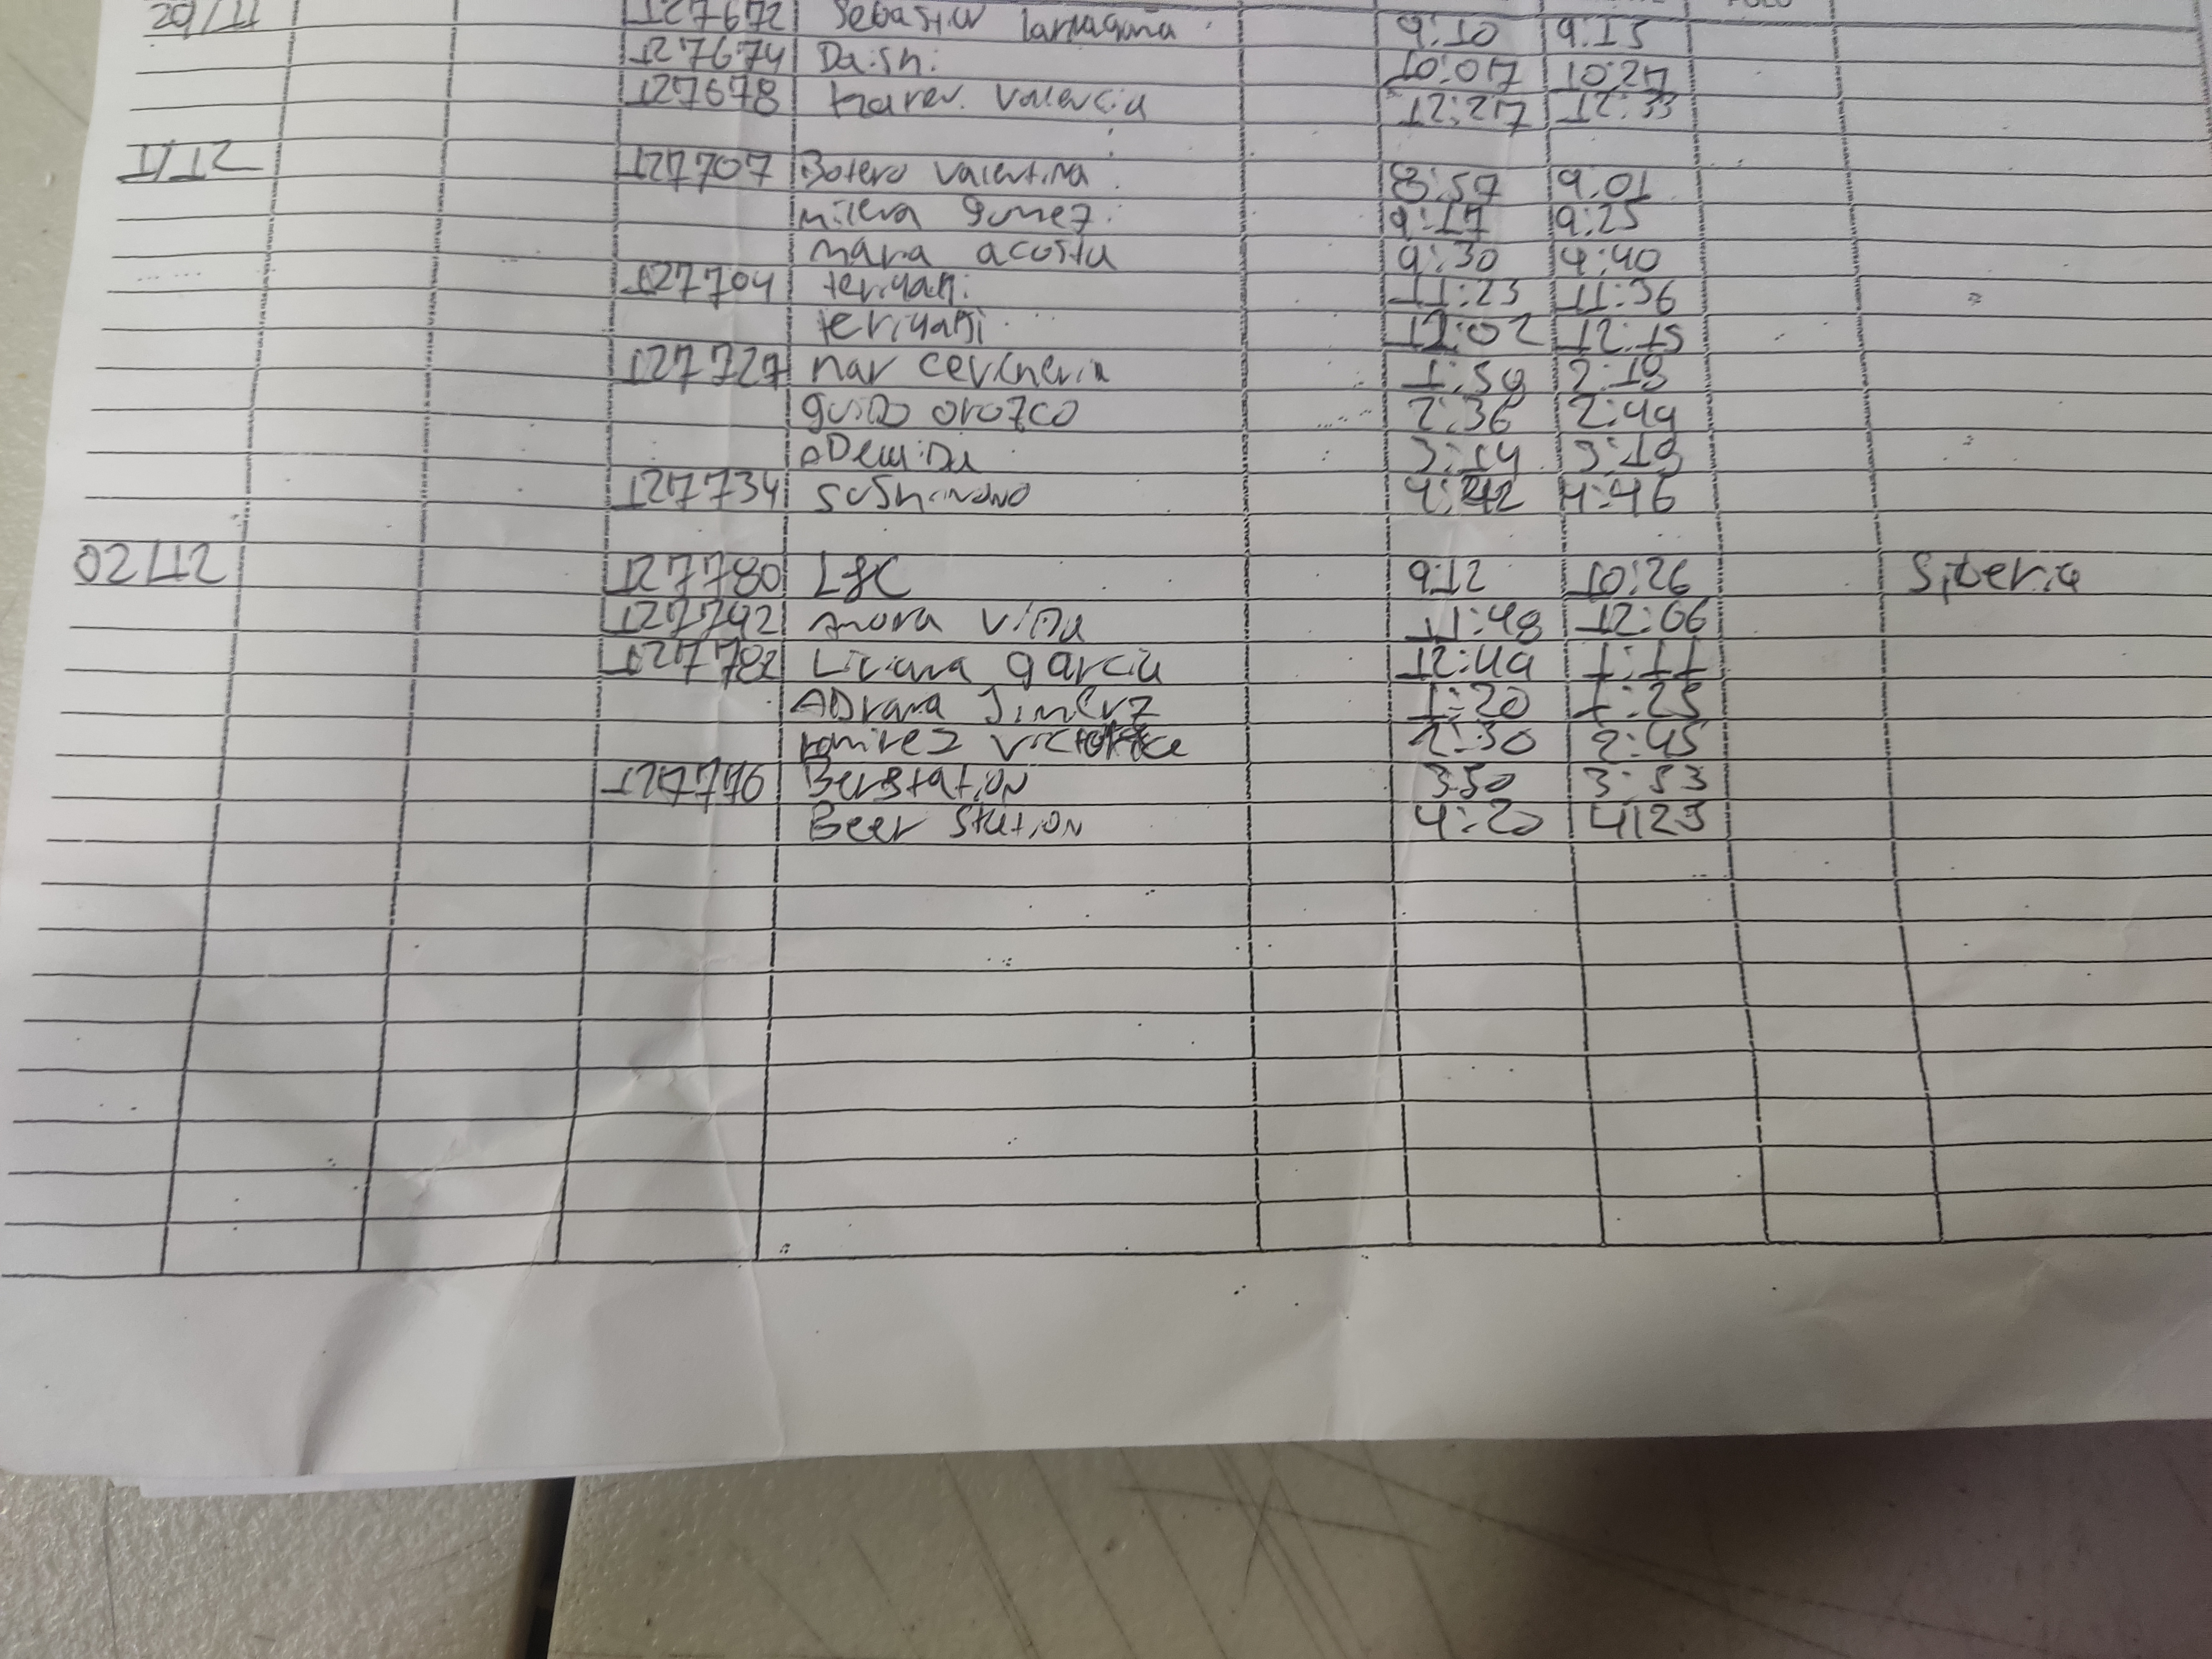 29/11 127672 Sebastian 9:10 9:15
127674 Daishi 10:07 10:27
127678 Karen Valencia 12:27 12:33
1/12 127707 Botero Valentina 8:57 9:01
milena gomez 9:17 9:25
maria acosta 9:30 9:40
127704 teriyaki 11:23 11:36
teriyaki 12:02 12:15
127727 mar cevicheria 1:59 2:19
guido orozco 2:36 2:49
3:14 3:19
127734 4:42 4:46
02/12 127780 L&C 9:12 10:26 Siberia
127792 Anora vida 11:48 12:06
127782 Liliana garcia 12:49 1:11
ADriana Jimenez 1:20 1:25
ramirez 2:30 2:45
127776 Berstation 3:50 3:53
Beer Station 4:20 4:23